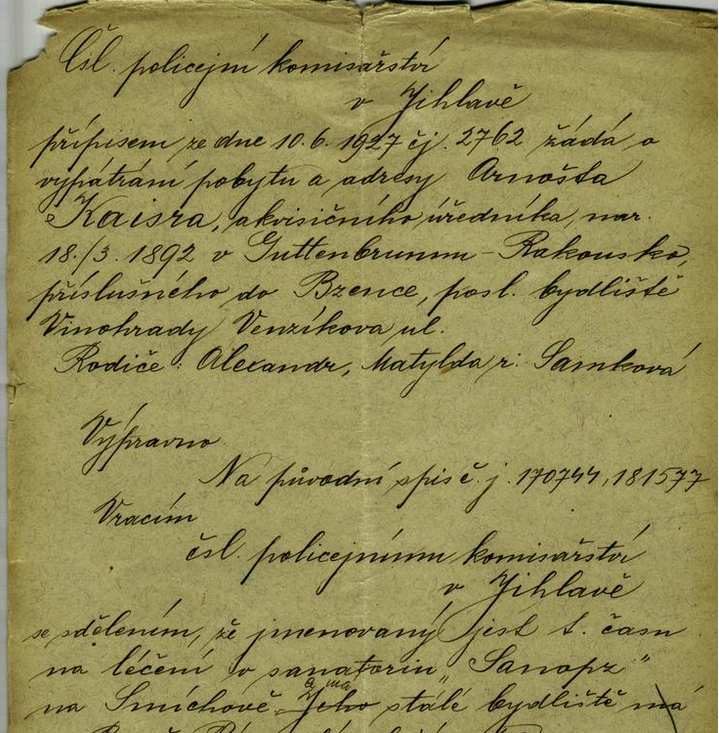 Čsl. policejní komisařství
v Jihlavě
přípisem ze dne 10.6. 1927 čj. 2762 žádá o
vypátrání pobytu a adresy Arnošta
Kaisra, akvisičního úředníka, nar.
18./3. 1892 v Guttenbrunnu - Rakousko,
příslušného do Bzence, posl. bydliště
Vinohrady Venzíkova ul.
Rodiče: Alexandr, Matylda r. Samková
Výpravno
Na původní spis č. j. 170744, 181577
Vracím
čsl. policejnímu komisařství
v Jihlavě
se sdělením, že jmenovaný jest t. času
na léčení v sanatoriu „Sanopz"
a má
na Smíchově. Jeho stálé bydliště má